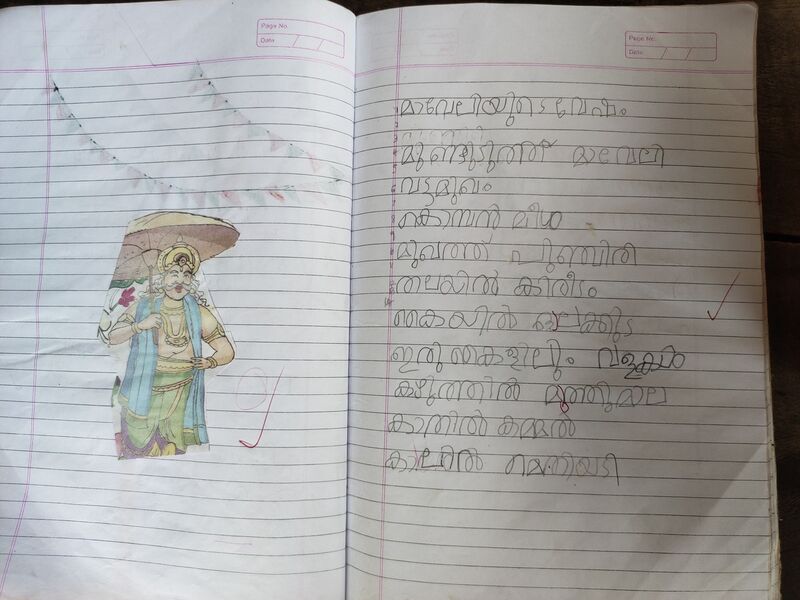 Page No.
Date
Page No.
Date
മാവേലിയുടെ വേഷം
മുണ്ടുടുത്ത് മാവേലി
വട്ടമുഖം
കൊമ്പൻ മീശ
മുഖത്ത് പുഞ്ചിരി
തലയിൽ കിരീടം
കൈയിൽ ഓലക്കുട
ഇരു കൈകളിലും വളകൾ
കഴുത്തിൽ മുത്തുമാല
കാതിൽ കമ്മൽ
കാലിൽ മെതിയടി